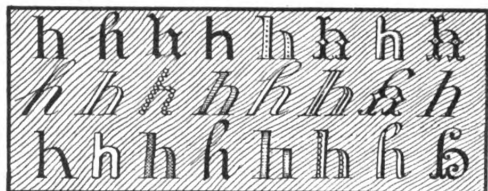 h h h h h h h h
h h h h h h h h
h h h h h h h h